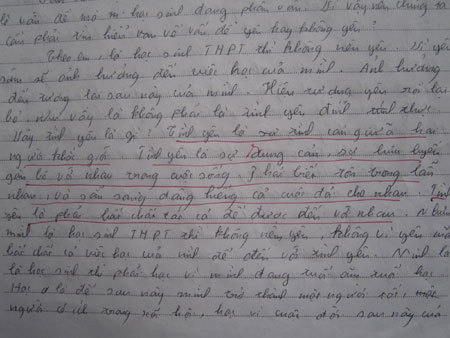 là vấn đề mà m học sinh đang phân vân. Vì vậy nên chúng ta
cần phải tìm hiểu vào vấn đề yêu hay không yêu?
Theo em là học sinh THPT thì không nên yêu. Vì yêu
sớm sẽ ảnh hưởng đến việc học của mình. Ảnh hưởng
đến tương lai sau này của mình. Hiện tượng yêu rồi lại
bỏ, như vậy là không phải là tình yêu đích thực.
Vậy tình yêu là gì? Tình yêu là sự tình cảm giữa hai
người khác giới. Tình yêu là sự dung cảm, sự lưu luyến
gắn bó với nhau trong cuộc sống, phải biết tôn trong lẫn
nhau, và sẵn sàng dâng hiến cả cuộc đời cho nhau. Tình
yêu là phải bất chất tất cả để được đến với nhau. Nhưng
mình là học sinh THPT thì không nên yêu, không vì yêu mà
bất chất cả việc học của mình để đến với tình yêu. Mình là
là học sinh thì phải học vì mình đang tuổi ăn tuổi học.
Học là để sau này mình trở thành một người tốt, một
người có ích trong xã hội, học vì cuộc đời sau này của